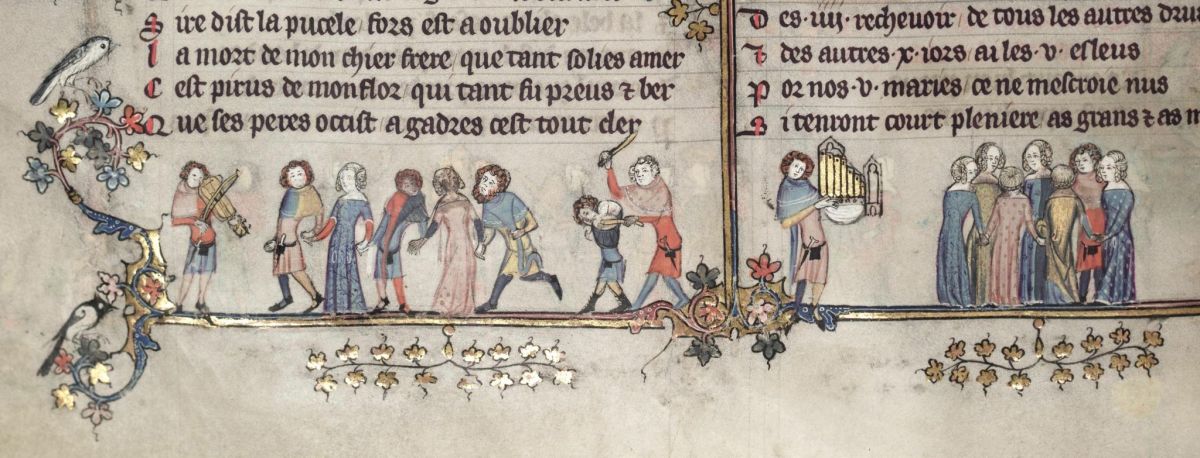 S ire dist la pucele / fors est a oublier
L a mort de mon chier frere / que tant solies amer
C est pirus de monflor / qui tant fu preus ⁊ ber
Q ue ses peres occist / a gadres cest tout cler
D es · iiij · rechevoir / de tous les autres drus
⁊ des autres · x · iors / ai les · v · esleus
P or nos · v · maries / ce ne mescroie nus
S i tenront court pleniere / as grans ⁊ as m